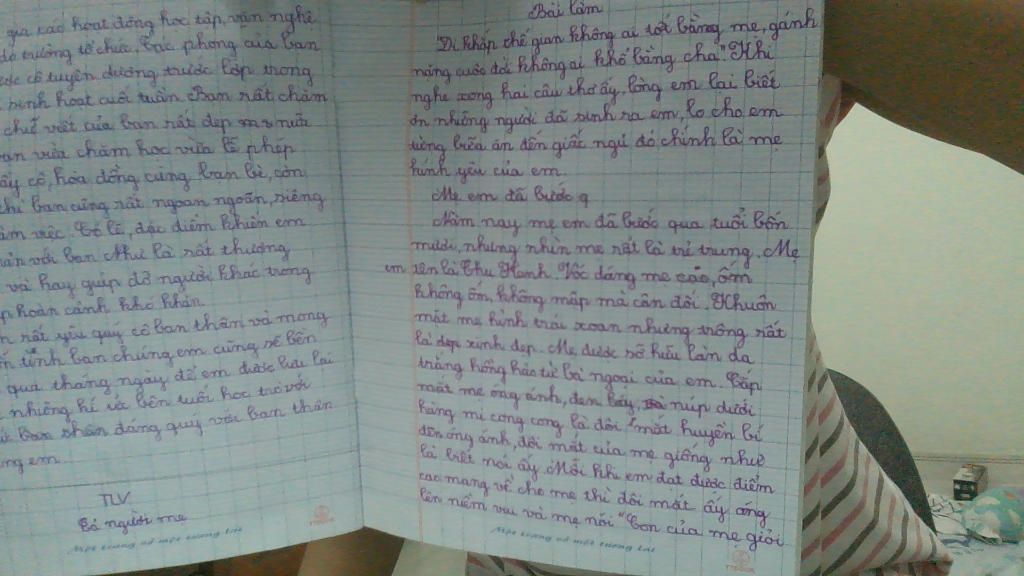 qua các hoạt động học tập, văn nghệ
do trường tổ chức, tác phong của bạn
được cô tuyên dương trước lớp trong
sinh hoạt cuối tuần. Bạn rất chăm
chữ viết của bạn rất đẹp nữa
bạn vừa chăm học vừa lễ phép
thầy cô, hòa đồng cùng bạn bè, còn
thì bạn cũng rất ngoan ngoãn, siêng
làm việc. Có lẽ, đặc điểm khiến em
thân với bạn Như là rất thương
và hay giúp đỡ người khác trong
hoàn cảnh khó khăn.
rất yêu quý cô bạn thân và mong
tình bạn chúng em cũng sẽ bền
qua tháng ngày để em được lưu lại
những kí và bên tuổi học trò với
bạn thân đáng quý với bạn thân
em.
TLV
Tả người mẹ
Một trang vở một tương lai
Bài làm
"Đi khắp thế gian không ai tốt bằng mẹ, gánh
nặng cuộc đời không ai khổ bằng cha". Khi
nghe xong hai câu thơ ấy, lòng em lại biết
ơn những người đã sinh ra em, lo cho em
từng bữa ăn đến giấc ngủ đó chính là mẹ
kính yêu của em.
Mẹ em đã bước q
Năm nay mẹ em đã bước qua tuổi bốn
mươi, nhưng nhìn mẹ rất là trẻ trung. Mẹ
em tên là Thu Hạnh. Vóc dáng mẹ cao, ốm
không ốm, không mập mà cân đối. Khuôn
mặt mẹ hình trái xoan nhưng trông rất
là đẹp xinh đẹp. Mẹ được sở hữu làn da
trắng hồng hào từ bà ngoại của em. Cặp
mắt mẹ óng ánh, đen láy, núp dưới
hàng mi cong cong là đôi "mắt huyền bí
đến óng ánh, đôi mắt của mẹ giống như
là biết nói ấy. Mỗi khi em đạt được điểm
cao mang về cho mẹ thì đôi mắt ấy ánh
lên niềm vui và mẹ nói "Con của mẹ giỏi
Một trang vở một tương lai